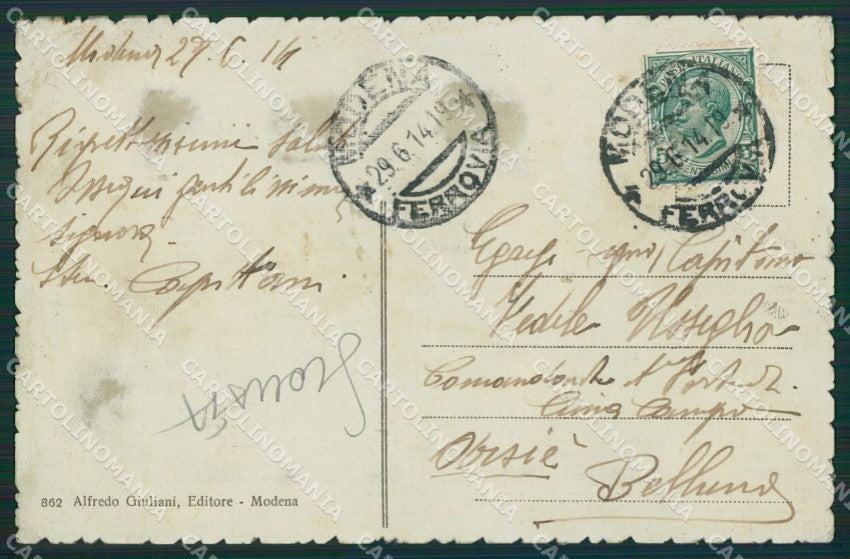 Modena 29.6.14
Rispettosissimi saluti
ossequi gentilissima
signora.
Capitani.
MODENA
29.6.14.19
FERROVIA
MODENA
29.6.14.19
FERROVIA
Capitano
Vedele Usseglio
Comandante
Cima Campo
Arsiè
Belluno
862 Alfredo Giuliani, Editore - Modena
CARTOLINOMANIA